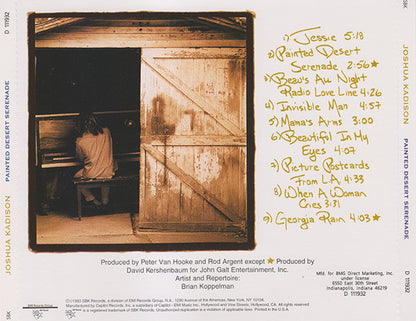 SBK
PAINTED DESERT SERENADE
JOSHUA KADISON
D 111932
1) Jessie 5:18
2) Painted Desert
Serenade 2:56★
3) Beau's All Night
Radio Love Line 4:26
4) Invisible Man 4:57
5) Mama's Arms 3:00
6) Beautiful In My
Eyes 4:07
7) Picture Postcards
From L.A. 4:33
8) When A Woman
Cries 3:31
9) Georgia Rain 4:03★
Produced by Peter Van Hooke and Rod Argent except ★ Produced by
David Kershenbaum for John Galt Entertainment, Inc.
Artist and Repertoire:
Brian Koppelman
©1993 SBK Records, a division of EMI Records Group, N.A., 1290 Avenue of the Americas, New York, NY 10104.
Manufactured by Capitol Records, Inc., a subsidiary of Capitol - EMI Music Inc., Hollywood and Vine Streets, Hollywood, California. All rights reserved.
Unauthorized duplication is a violation of applicable laws. Printed in the United States.
Mfd. for BMG Direct Marketing, Inc.
under license
6550 East 30th Street
Indianapolis, Indiana 46219
D 111932
D 111932
JOSHUA KADISON
PAINTED DESERT SERENADE
SBK